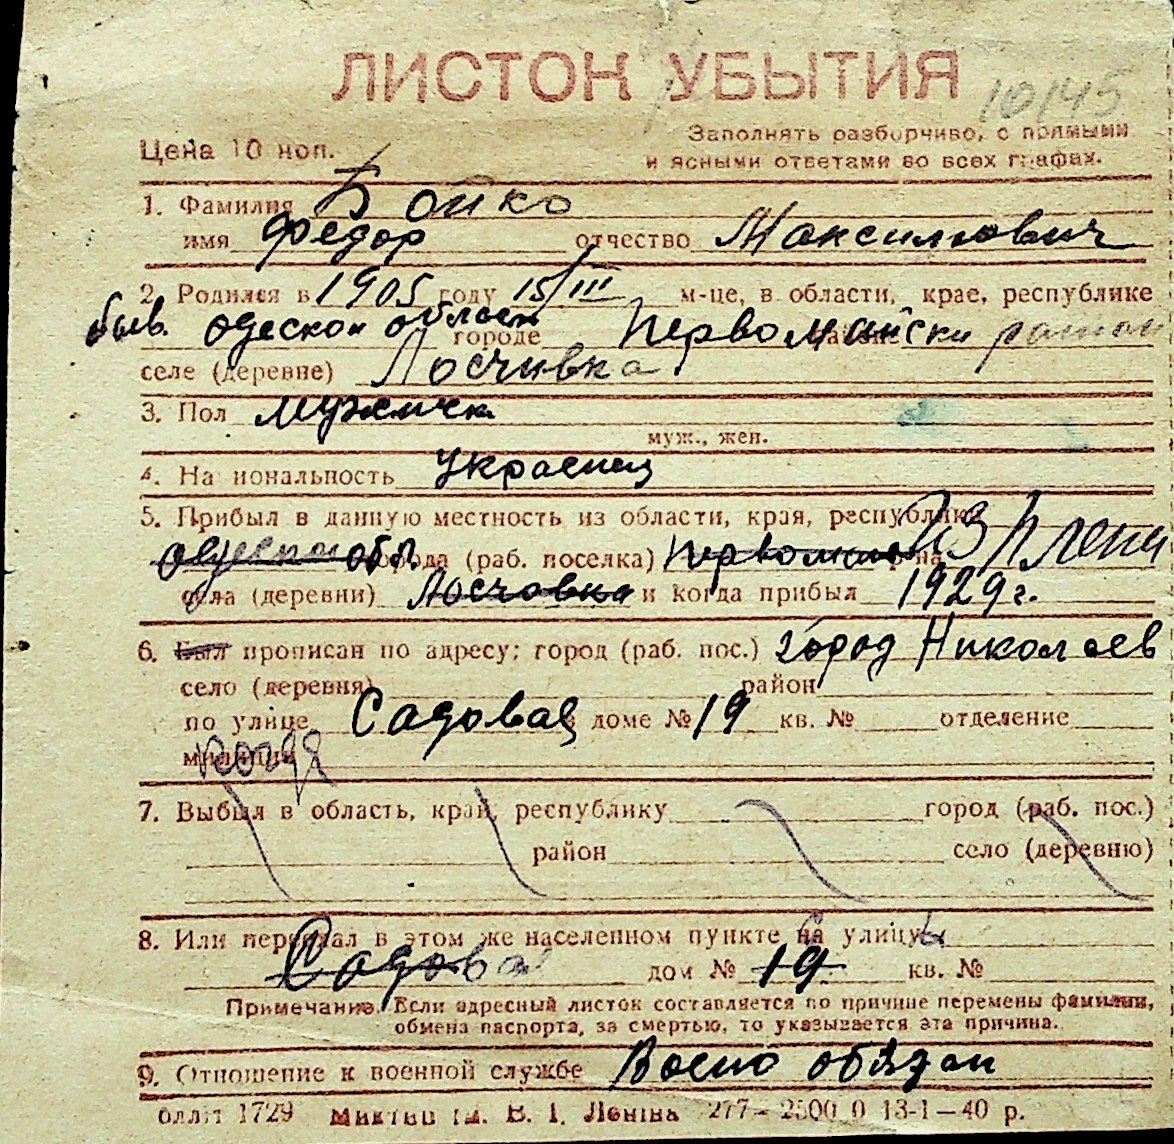 ЛИСТОК УБЫТИЯ
10145
Цена 10 коп.
Заполнять разборчиво, с прямыми
и ясными ответами во всех графах.
1. Фамилия Бойко
имя Федор отчество Максимович
2. Родился в 1905 году 15/III м-це, в области, крае, республике
быв. одеской област городе Первомайски район
селе (деревне) Лосчивка
3. Пол мужичк
муж., жен.
4. На иональность Украенец
5. Прибыл в данную местность из области, края, республики Из Плена
одеской обл. города (раб. поселка) Первомай
села (деревни) Лосчовка и когда прибыл 1929 г.
6. Был прописан по адресу: город (раб. пос.) город Николаев
село (деревня) район
по улице Садовая доме № 19 кв. № отделение
милиции
7. Выбыл в область, край, республику город (раб. пос.)
район село (деревню)
8. Или переехал в этом же населенном пункте на улицу
Садова дом № 19 кв. №
Примечание. Если адресный листок составляется по причине перемены фамилии,
обмена паспорта, за смертью, то указывается эта причина.
9. Отношение к военной службе Воено обязан
1729 В. І. Леніна 277—2500 0 13-1—40 р.